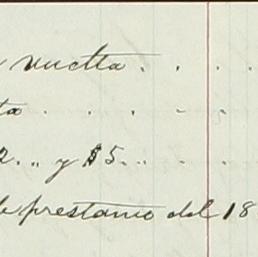 vuelta . . . .
ta . . . . .
2. „ y $5. „ . .
de prestamo del 18